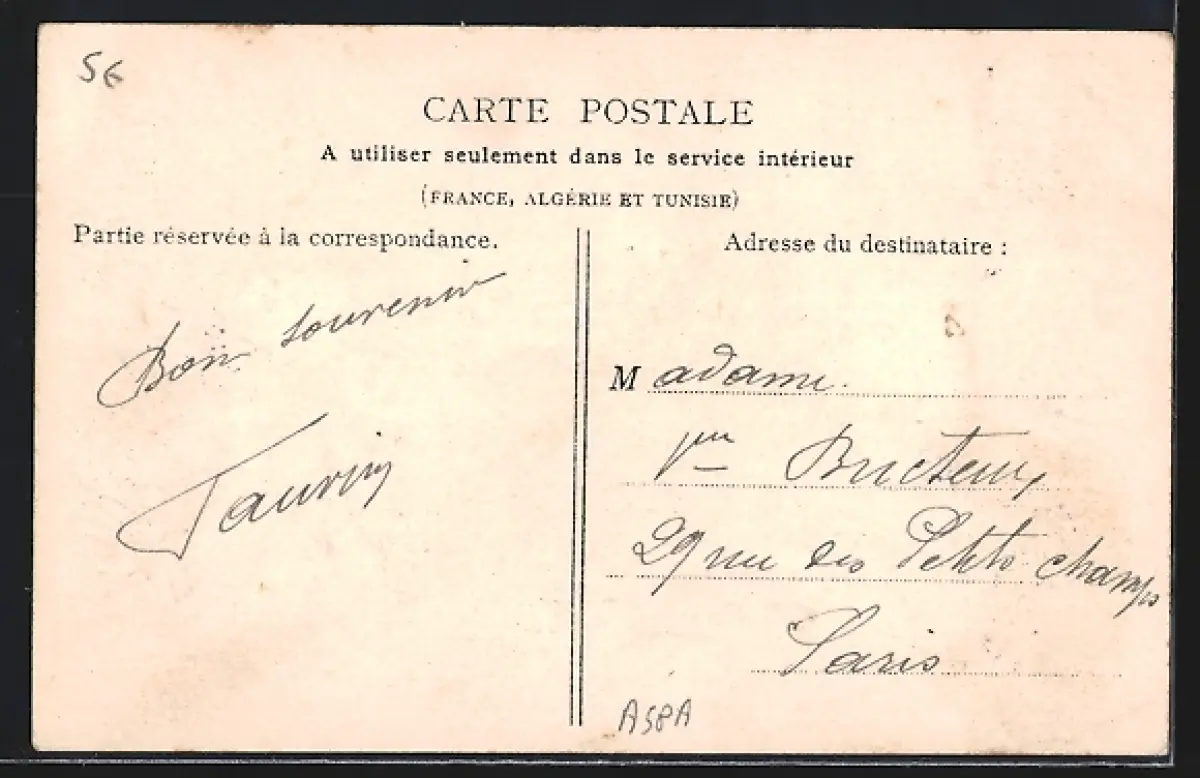 5€
CARTE POSTALE
A utiliser seulement dans le service intérieur
(FRANCE, ALGÉRIE ET TUNISIE)
Partie réservée à la correspondance.
Adresse du destinataire :
Bon souvenir
Taurin
Madame
Vve
29 rue des Petits champs
Paris
A58A